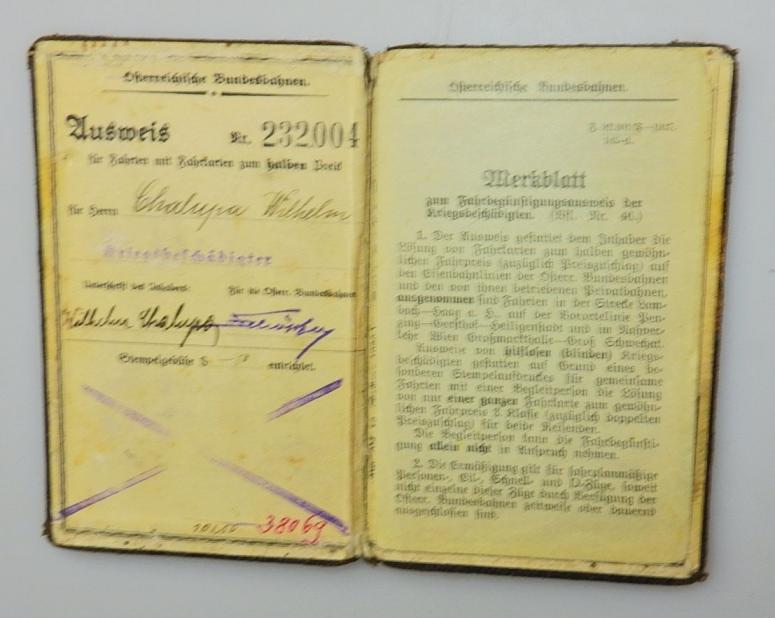 Österreichische Bundesbahnen.
Ausweis Nr. 232.004
für Fahrten mit Fahrkarten zum halben Preis
für Herrn Chalupa Wilhelm
Kriegsbeschädigter
Unterschrift des Inhabers: Für die Österr. Bundesbahnen
Wilhelm Chalupa
Stempelgebühr S entrichtet.
38069
Österreichische Bundesbahnen.
Merkblatt
zum Fahrbegünstigungsausweis der
Kriegsbeschädigten. (Bl. Nr. 46.)
1. Der Ausweis gestattet dem Inhaber die
Lösung von Fahrkarten zum halben gewöhn-
lichen Fahrpreis (zuzüglich Preiszuschlag) auf
den Eisenbahnlinien der Österr. Bundesbahnen
und den von ihnen betriebenen Privatbahnen,
ausgenommen sind Fahrten in der Strecke Lam-
bach—Haag a. H., auf der Vorortelinie Pen-
zing—Gersthof—Heiligenstadt und im Nahver-
kehr Wien Großmarkthalle—Groß Schwechat.
Ausweise von hilflosen (blinden) Kriegs-
beschädigten gestatten auf Grund eines be-
sonderen Stempelaufdruckes für gemeinsame
Fahrten mit einer Begleitperson die Lösung
von nur einer ganzen Fahrkarte zum gewöhn-
lichen Fahrpreis 3. Klasse (zuzüglich doppelten
Preiszuschlag) für beide Reisenden.
Die Begleitperson kann die Fahrbegünsti-
gung allein nicht in Anspruch nehmen.
2. Die Ermäßigung gilt für fahrplanmäßige
Personen-, Eil-, Schnell- und D-Züge, soweit
nicht einzelne dieser Züge durch Verfügung der
Österr. Bundesbahnen zeitweise oder dauernd
ausgeschlossen sind.